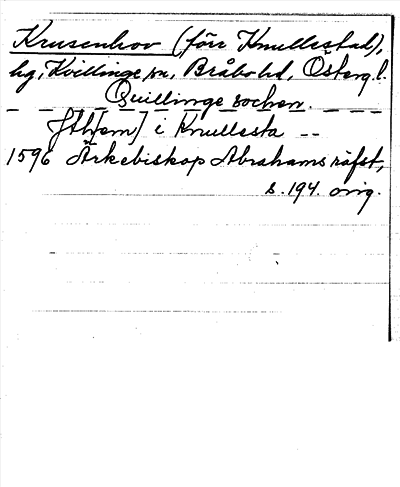 Krusenhov (förr Knullestad),
hg, Kvillinge sn, Bråbo hd, Österg. l.
Quillinge sochen.
Jth[em] i Knullesta --
1596 Ärkebiskop Abrahams räfst,
s. 194. orig.